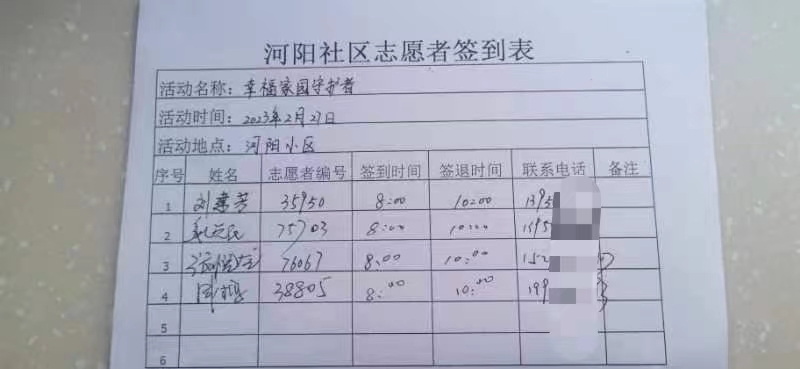 河阳社区志愿者签到表
活动名称：幸福家园守护者
活动时间：2023年2月27日
活动地点：河阳小区
序号 姓名 志愿者编号 签到时间 签退时间 联系电话 备注
1 刘素芳 35950 8:00 10:00 1395
2 75703 8:00 10:00 1595
3 76067 8:00 10:00 152
4 38805 8:00 10:00 199
5
6